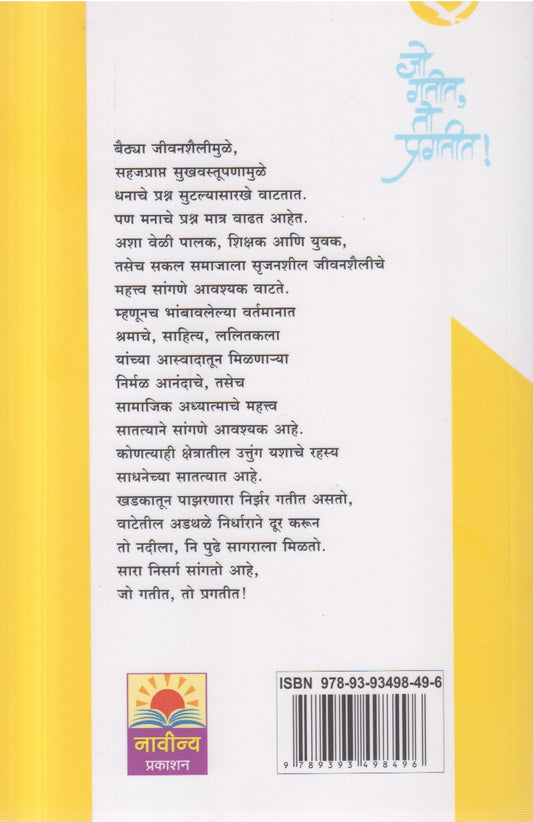 जो
गतीत,
तो
प्रगतीत!
बैठ्या जीवनशैलीमुळे,
सहजप्राप्त सुखवस्तूपणामुळे
धनाचे प्रश्न सुटल्यासारखे वाटतात.
पण मनाचे प्रश्न मात्र वाढत आहेत.
अशा वेळी पालक, शिक्षक आणि युवक,
तसेच सकल समाजाला सृजनशील जीवनशैलीचे
महत्त्व सांगणे आवश्यक वाटते.
म्हणूनच भांबावलेल्या वर्तमानात
श्रमाचे, साहित्य, ललितकला
यांच्या आस्वादातून मिळणाऱ्या
निर्मळ आनंदाचे, तसेच
सामाजिक अध्यात्माचे महत्त्व
सातत्याने सांगणे आवश्यक आहे.
कोणत्याही क्षेत्रातील उत्तुंग यशाचे रहस्य
साधनेच्या सातत्यात आहे.
खडकातून पाझरणारा निर्झर गतीत असतो,
वाटेतील अडथळे निर्धाराने दूर करून
तो नदीला, नि पुढे सागराला मिळतो.
सारा निसर्ग सांगतो आहे,
जो गतीत, तो प्रगतीत!
नावीन्य
प्रकाशन
ISBN 978-93-93498-49-6
9 789393 498496